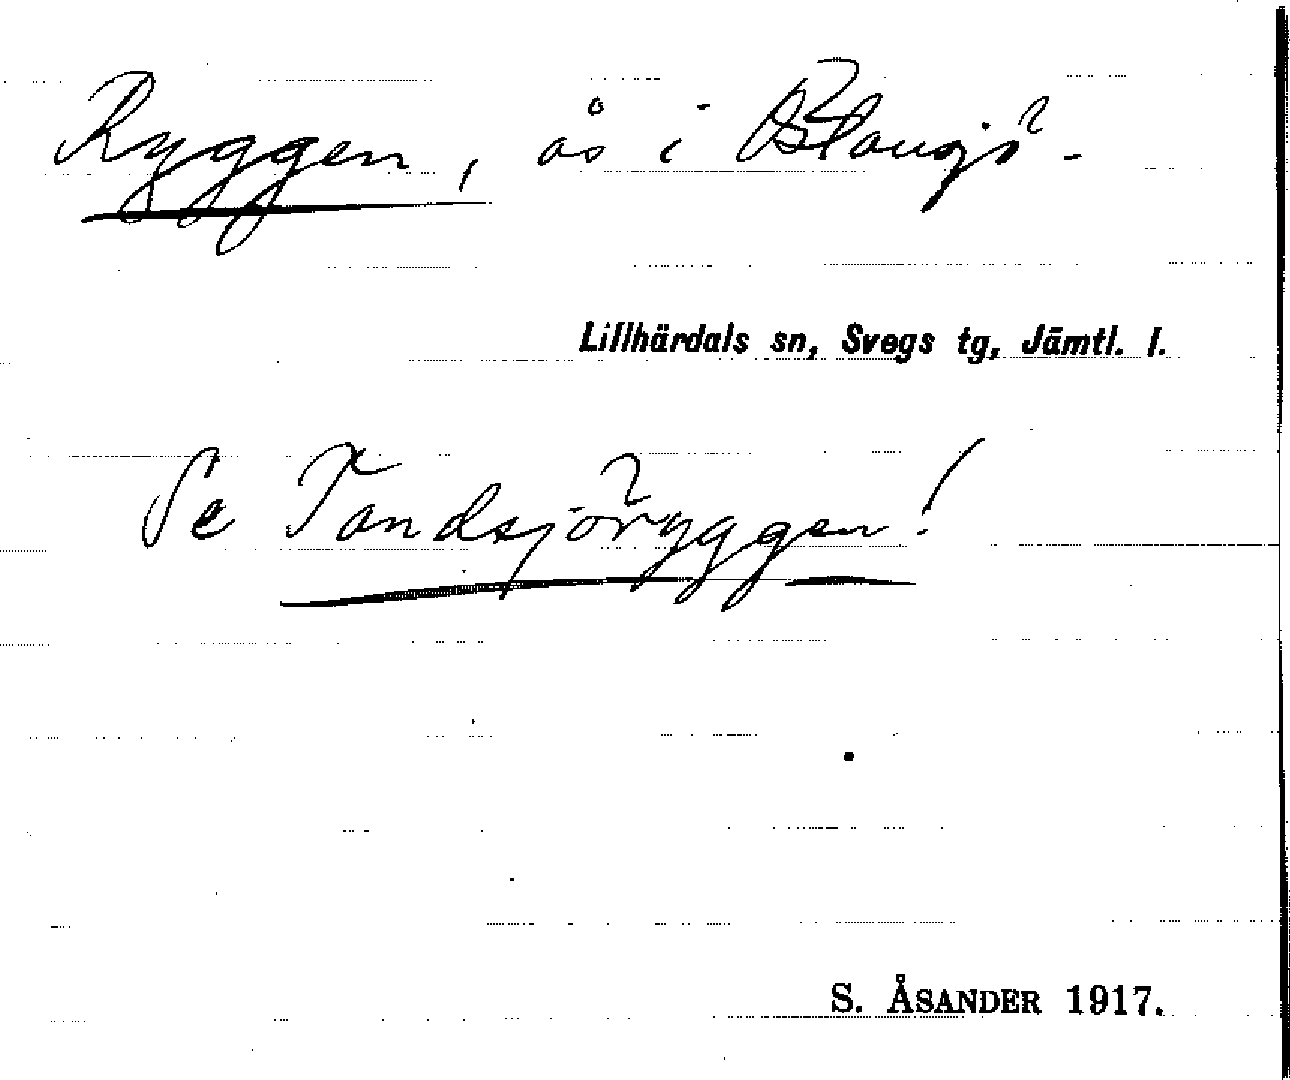 Ryggen, ås i
Lillhärdals sn, Svegs tg, Jämtl. l.
Se Tandsjöryggen!
S. ÅSANDER 1917.